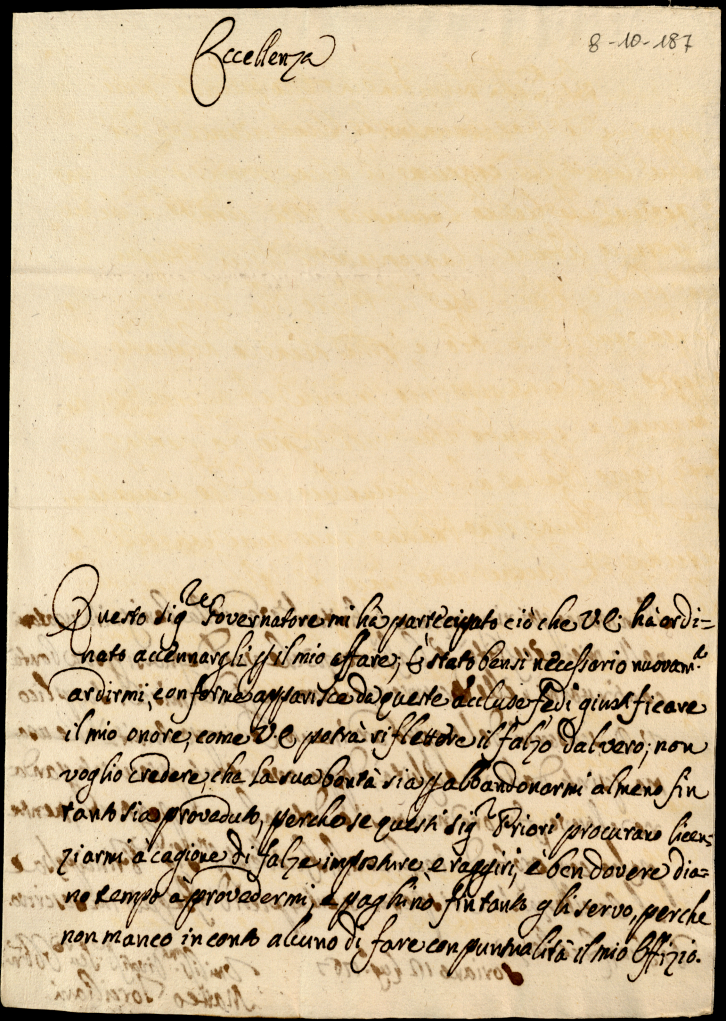 Eccellenza
8-10-187
Questo Sig.re Governatore mi hà partecipato ciò che V.E. hà ordi-
nato accennargli p il mio affare; È stato bensì necessario nuovam.te
ardirmi, conforme apparisce da queste accluse fedi giustificare
il mio onore, come V.E. potrà riflettere il falzo dal vero; non
voglio credere, che la sua bontà sia p abbandonarmi almeno fin
tanto sia proveduto, perche se questi Sig.ri Priori procurano licen-
ziarmi a cagione di falze imposture, e raggiri, è ben dovere dia-
no tempo à provedermi, e paghino fintanto gli servo, perche
non manco in conto alcuno di fare con puntualità il mio Offizio.